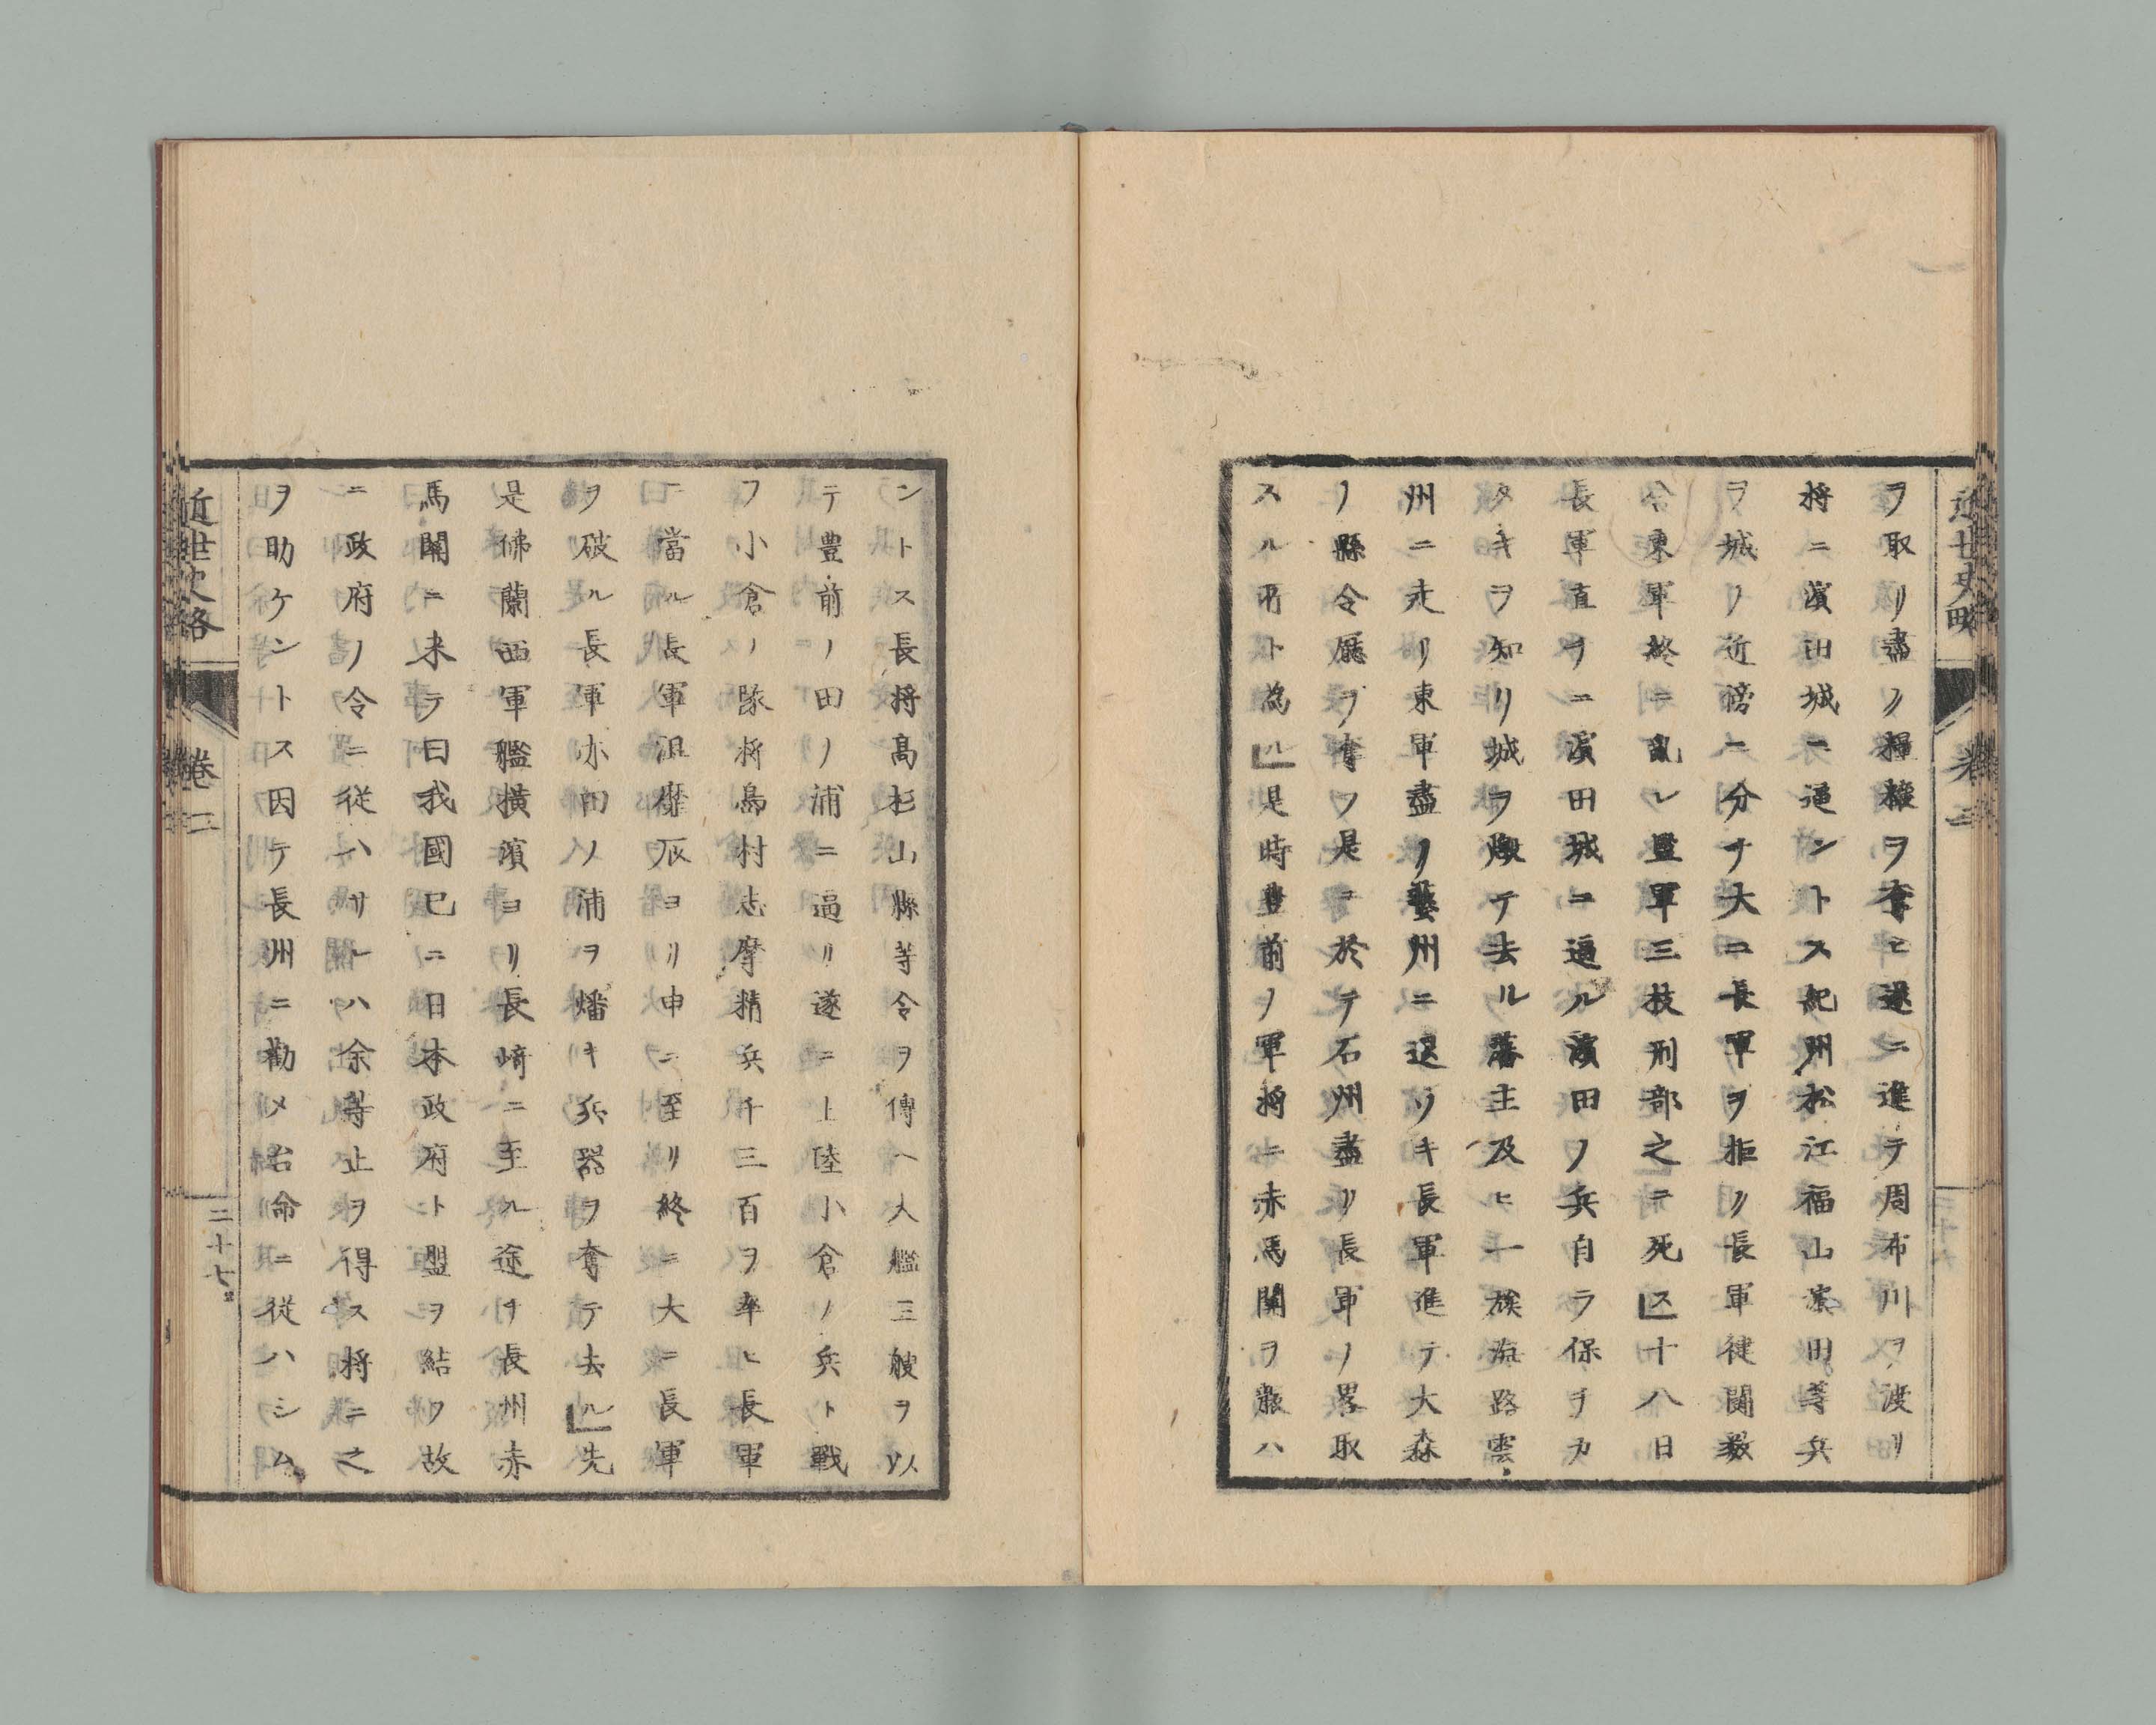 ヲ取リ盡ク糧糒ヲ奪ヒ遂ニ進テ周布川ヲ渡リ
將ニ濱田城ニ逼ントス紀州松江福山濱田等兵
ヲ城ノ近傍ニ分チ大ニ長軍ヲ拒ク長軍健鬪數
合東軍終ニ亂レ監軍三枝刑部之ニ死ス十八日
長軍直チニ濱田城ニ逼ル濱田ノ兵自ラ保チカ
タキヲ知リ城ヲ燬テ去ル藩主及ヒ一族海路雲
州ニ走リ東軍盡ク藝州ニ退ソキ長軍進テ大森
ノ縣令廳ヲ奪フ是ニ於テ石州盡ク長軍ノ畧取
スル所ト為ル是時豊前ノ軍將ニ赤馬關ヲ襲ハ
近世史略
卷二
ントス長將高杉山縣等令ヲ傳ヘ大艦三艘ヲ以
テ豊前ノ田ノ浦ニ逼リ遂ニ上陸小倉ノ兵ト戰
フ小倉ノ隊將島村志摩精兵千三百ヲ率ヒ長軍
ニ當ル長軍沮靡辰ヨリ申ニ至リ終ニ大ニ長軍
ヲ破ル長軍亦田ノ浦ヲ燔キ兵器ヲ奪テ去ル先
是佛蘭西軍艦横濱ヨリ長崎ニ至ル途チ長州赤
馬關ニ来テ曰我國已ニ日本政府ト盟ヲ結フ故
ニ政府ノ令ニ從ハサレハ余等止ヲ得ス將ニ之
ヲ助ケントス因テ長州ニ勸メ台命ニ從ハシム
近世史略
卷二
三十七